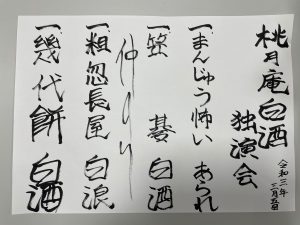 桃月庵白酒
独演会
令和三年
三月五日
一 まんじゅう怖い あられ
一 笠碁 白酒
仲入り
一 粗忽長屋 白浪
一 幾代餅 白酒